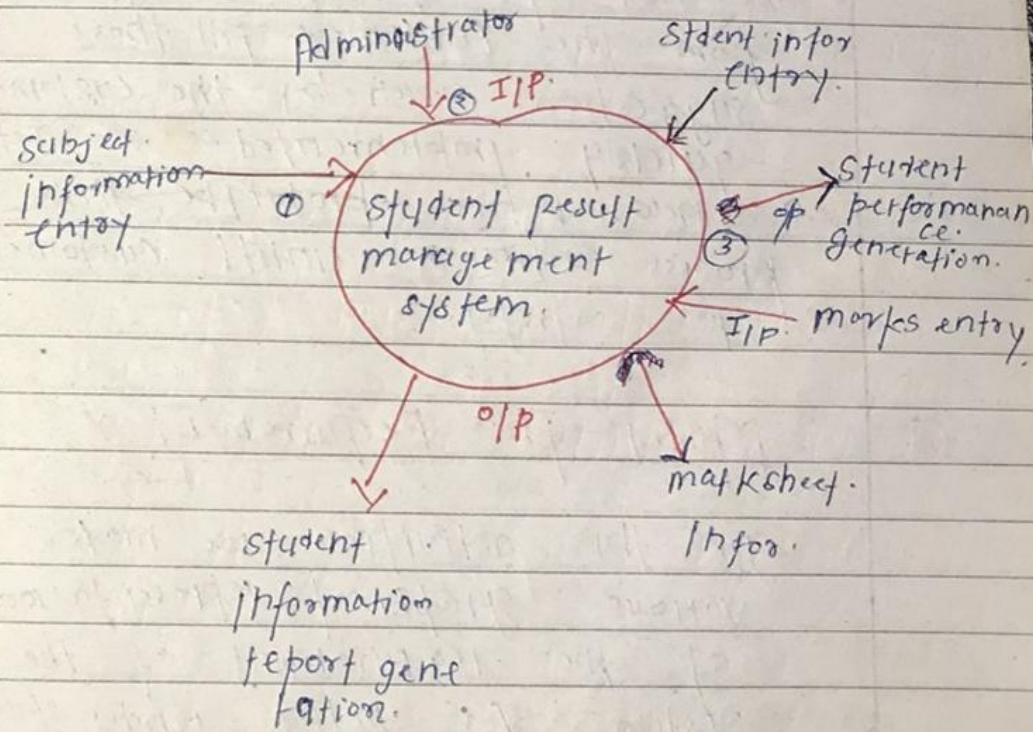 Administrator
I/P.
②
Stdent infor
entry.
Subject
information
entry
①
Student Result
management
system.
③
o/p
Student
performanan
ce.
generation.
I/P.
marks entry
O/P.
marksheet.
Infor.
student
information
report gene
ration.